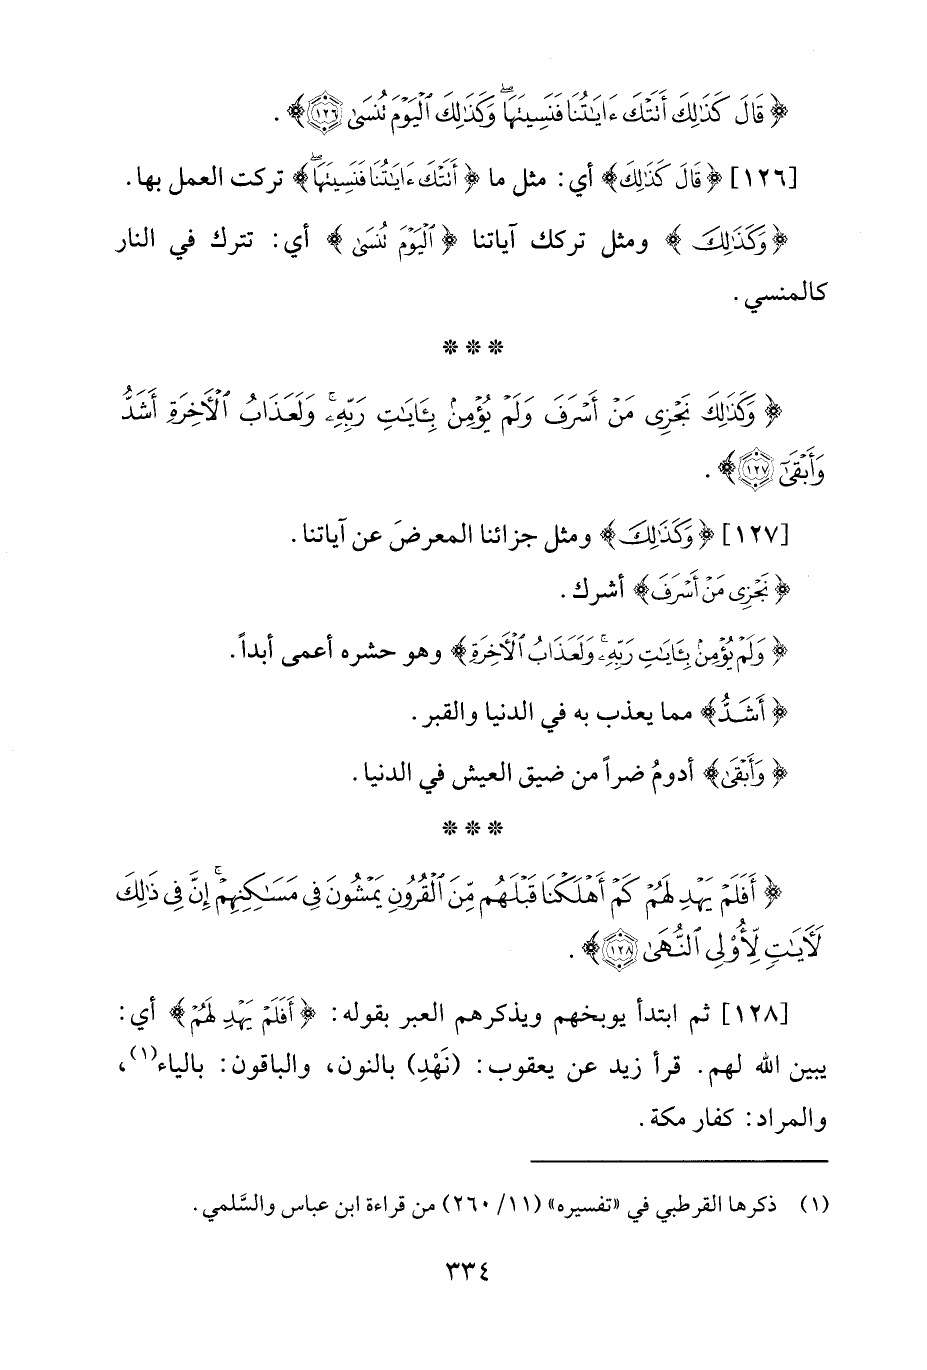 ﴿قَالَ كَذَٰلِكَ أَتَتْكَ ءَايَٰتُنَا فَنَسِيتَهَا ۖ وَكَذَٰلِكَ ٱلْيَوْمَ تُنسَىٰ ١٢٦﴾ .
[١٢٦] ﴿قَالَ كَذَٰلِكَ﴾ أي: مثل ما ﴿أَتَتْكَ ءَايَٰتُنَا فَنَسِيتَهَا ۖ﴾ تركت العمل بها.
﴿وَكَذَٰلِكَ﴾ ومثل تركك آياتنا ﴿ٱلْيَوْمَ تُنسَىٰ﴾ أي: تترك في النار
كالمنسي.
***
﴿وَكَذَٰلِكَ نَجْزِى مَنْ أَسْرَفَ وَلَمْ يُؤْمِنۢ بِـَٔايَٰتِ رَبِّهِۦ ۚ وَلَعَذَابُ ٱلْأَخِرَةِ أَشَدُّ
وَأَبْقَىٰٓ ١٢٧﴾ .
[١٢٧] ﴿وَكَذَٰلِكَ﴾ ومثل جزائنا المعرضَ عن آياتنا.
﴿نَجْزِى مَنْ أَسْرَفَ﴾ أشرك.
﴿وَلَمْ يُؤْمِنۢ بِـَٔايَٰتِ رَبِّهِۦ ۚ وَلَعَذَابُ ٱلْأَخِرَةِ﴾ وهو حشره أعمى أبداً.
﴿أَشَدُّ﴾ مما يعذب به في الدنيا والقبر.
﴿وَأَبْقَىٰ﴾ أدومُ ضراً من ضيق العيش في الدنيا.
***
﴿أَفَلَمْ يَهْدِ لَهُمْ كَمْ أَهْلَكْنَا قَبْلَهُم مِّنَ ٱلْقُرُونِ يَمْشُونَ فِى مَسَٰكِنِهِمْ ۚ إِنَّ فِى ذَٰلِكَ
لَـَٔايَٰتٍ لِّأُو۟لِى ٱلنُّهَىٰ ١٢٨﴾ .
[١٢٨] ثم ابتدأ يوبخهم ويذكرهم العبر بقوله: ﴿أَفَلَمْ يَهْدِ لَهُمْ﴾ أي:
يبين الله لهم. قرأ زيد عن يعقوب: (نَهْدِ) بالنون، والباقون: بالياء(١)،
والمراد: كفار مكة.
(١) ذكرها القرطبي في «تفسيره» (١١/ ٢٦٠) من قراءة ابن عباس والسَّلمي.
٣٣٤